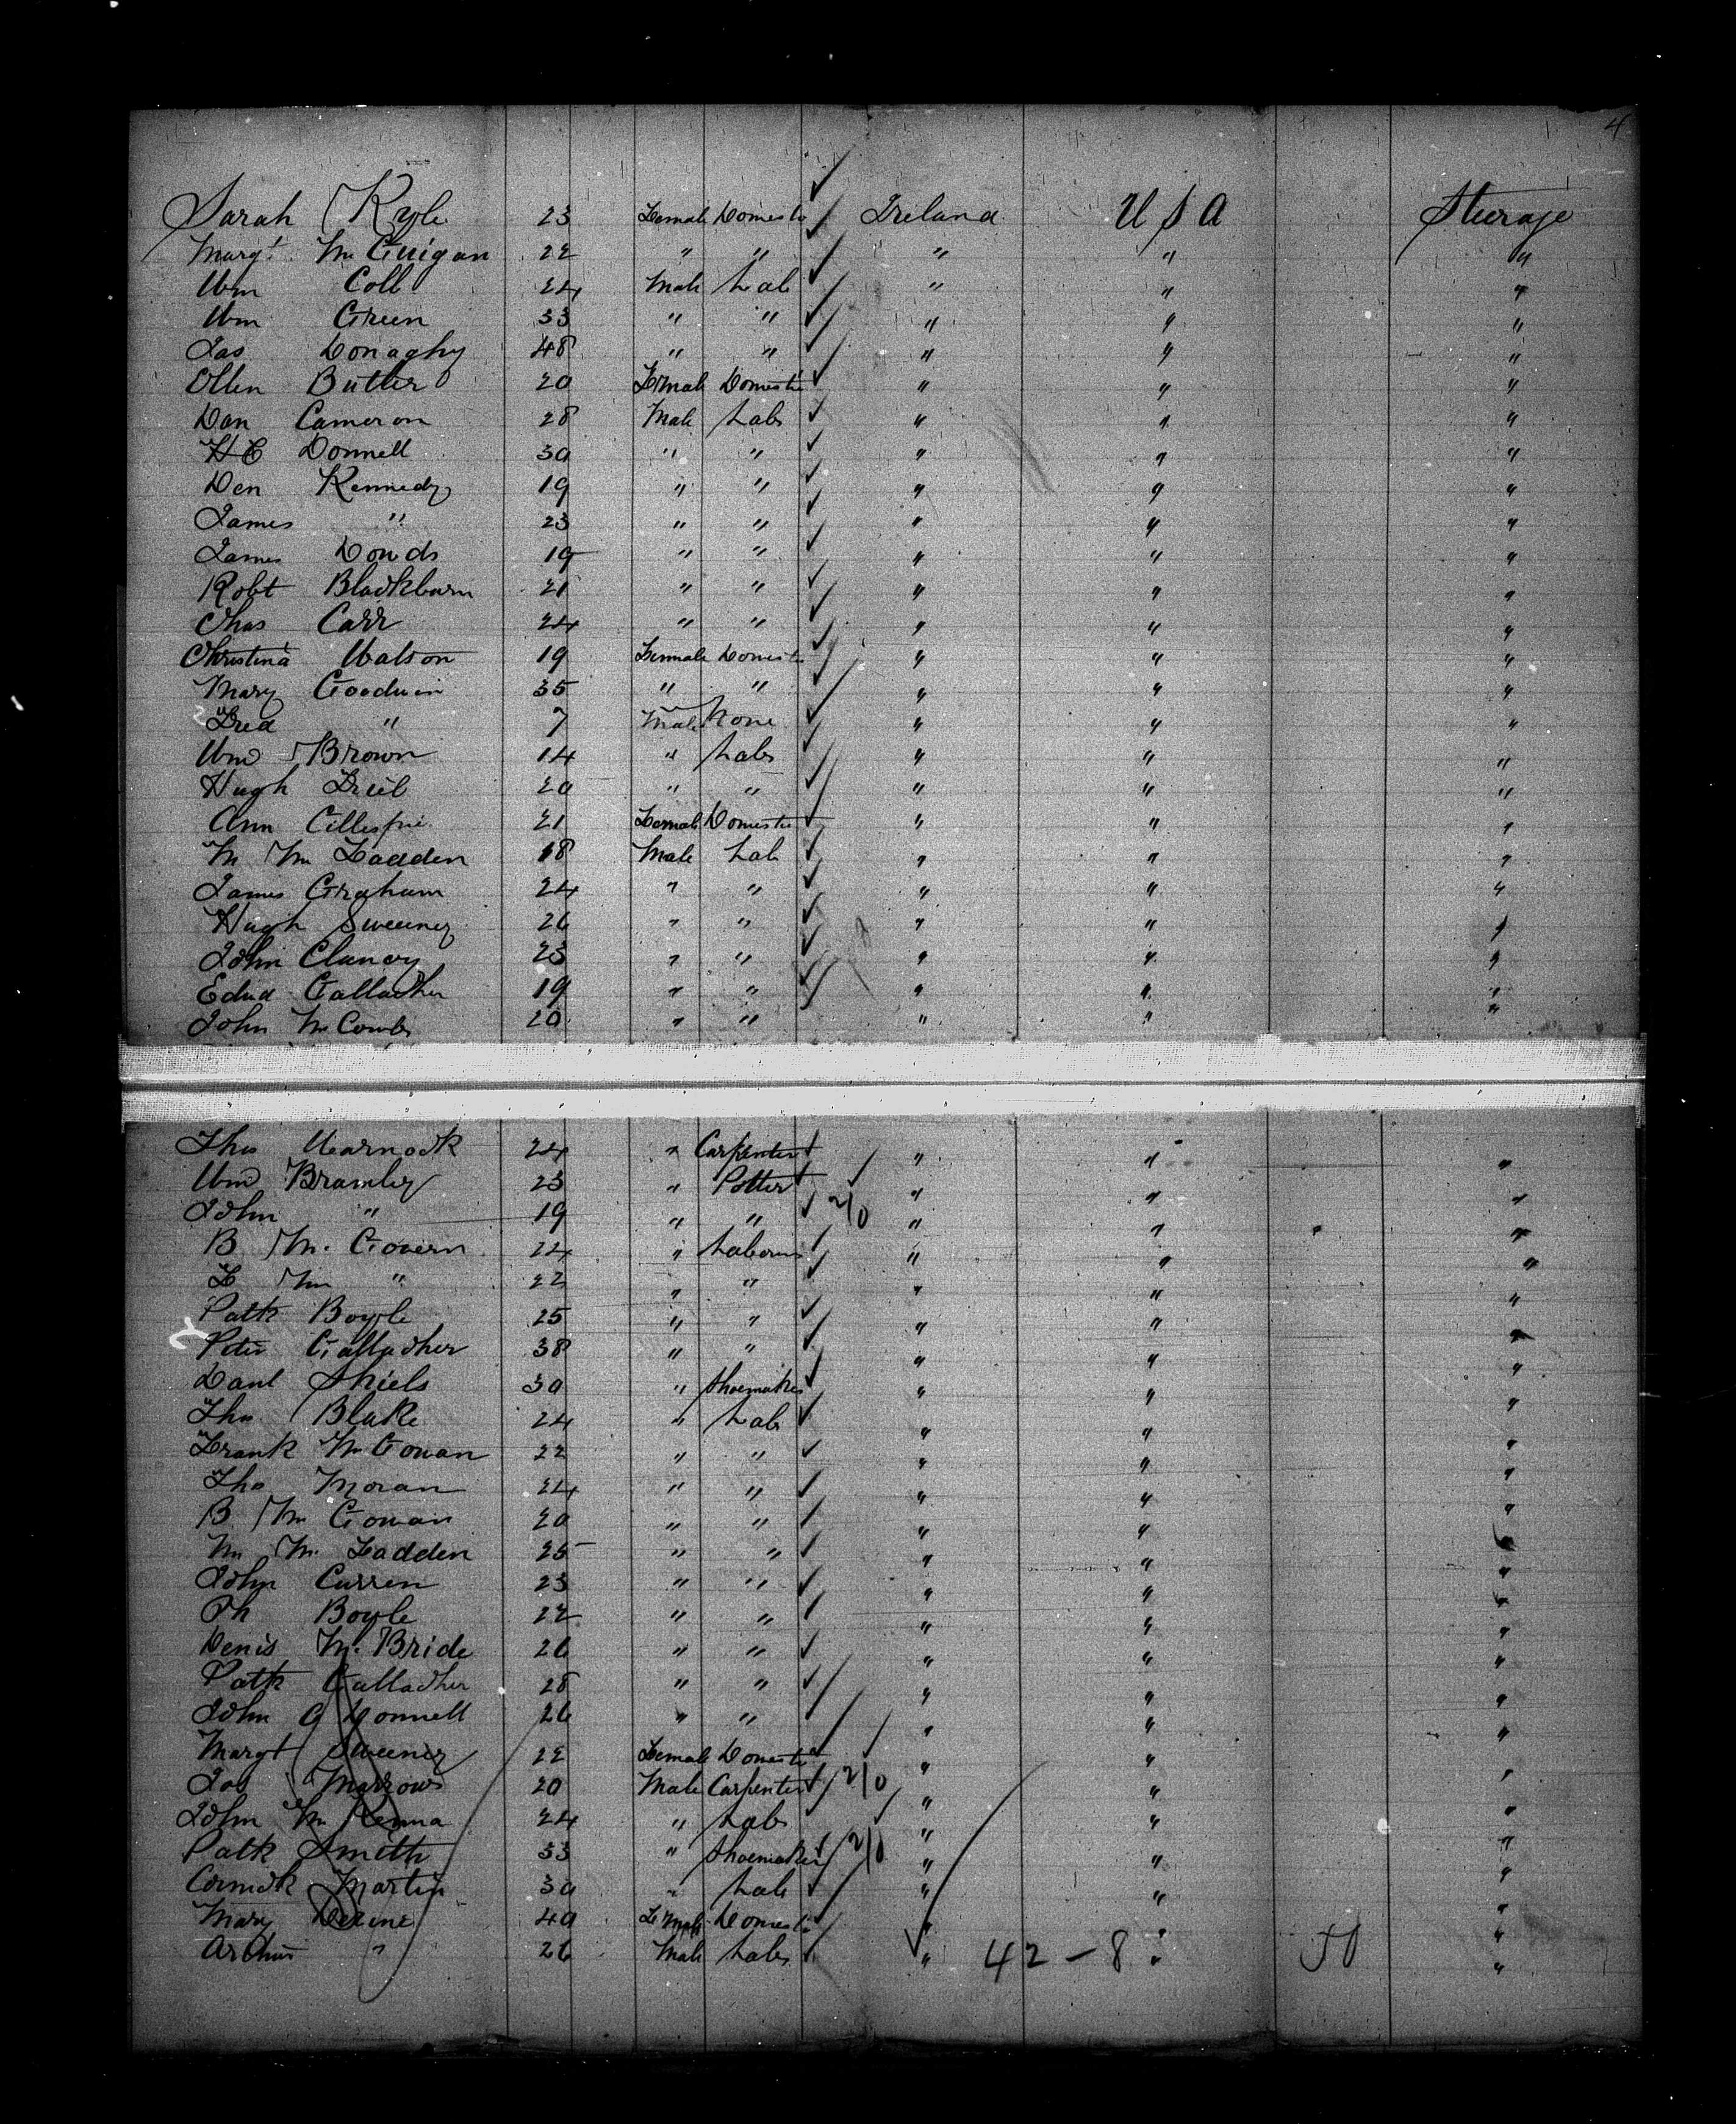 4
Sarah Kyle 23 Female Domestic Ireland U S A Steerage
Margt Mc Guigan 22 " " " " "
Wm Coll 24 Male Lab " " "
Wm Green 33 " " " " "
Jas Donaghy 48 " " " " "
Ellen Butler 20 Female Domestic " " "
Dan Cameron 28 Male Lab " " "
Donnell 30 " " " " "
Den Kennedy 19 " " " " "
James " 23 " " " " "
James Dowds 19 " " " " "
Robt Blackburn 21 " " " " "
Chas Carr 24 " " " " "
Christina Watson 19 Female Domestic " " "
Mary Goodwin 35 " " " " "
Fred " 7 Male None " " "
Wm Brown 14 " Lab " " "
Hugh Friel 20 " " " " "
Ann Gillespie 21 Female Domestic " " "
M Mc Fadden 18 Male Lab " " "
James Graham 24 " " " " "
Hugh Sweeney 26 " " " " "
John Clancy 23 " " " " "
Edwd Gallagher 19 " " " " "
John Mc Combs 20 " " " " "
Thos Warnock 24 " Carpenter " " "
Wm Bramley 23 " Potter " " "
John " 19 " " 2/0 " " "
B Mc Govern 24 " Labourer " " "
F Mc " 22 " " " " "
Patk Boyle 25 " " " " "
Peter Gallagher 38 " " " " "
Danl Shiels 30 " Shoemaker " " "
Thos Blake 24 " Lab " " "
Frank Mc Gowan 22 " " " " "
Thos Moran 24 " " " " "
B Mc Gowan 20 " " " " "
M Mc Fadden 25 " " " " "
John Curren 23 " " " " "
Boyle 22 " " " " "
Denis Mc Bride 26 " " " " "
Patk Gallagher 28 " " " " "
John O Donnell 26 " " " " "
Margt Sweeney 22 Female Domestic " " "
Jas Marrows 20 Male Carpenter 2/0 " " "
John Mc Kenna 24 " Lab " " "
Patk Smith 33 " Shoemaker 2/0 " " "
Cormick Martin 30 " Lab " " "
Mary Devine 40 Female Domestic " " "
Arthur " 26 Male Lab " 42 - 8 " 50 "